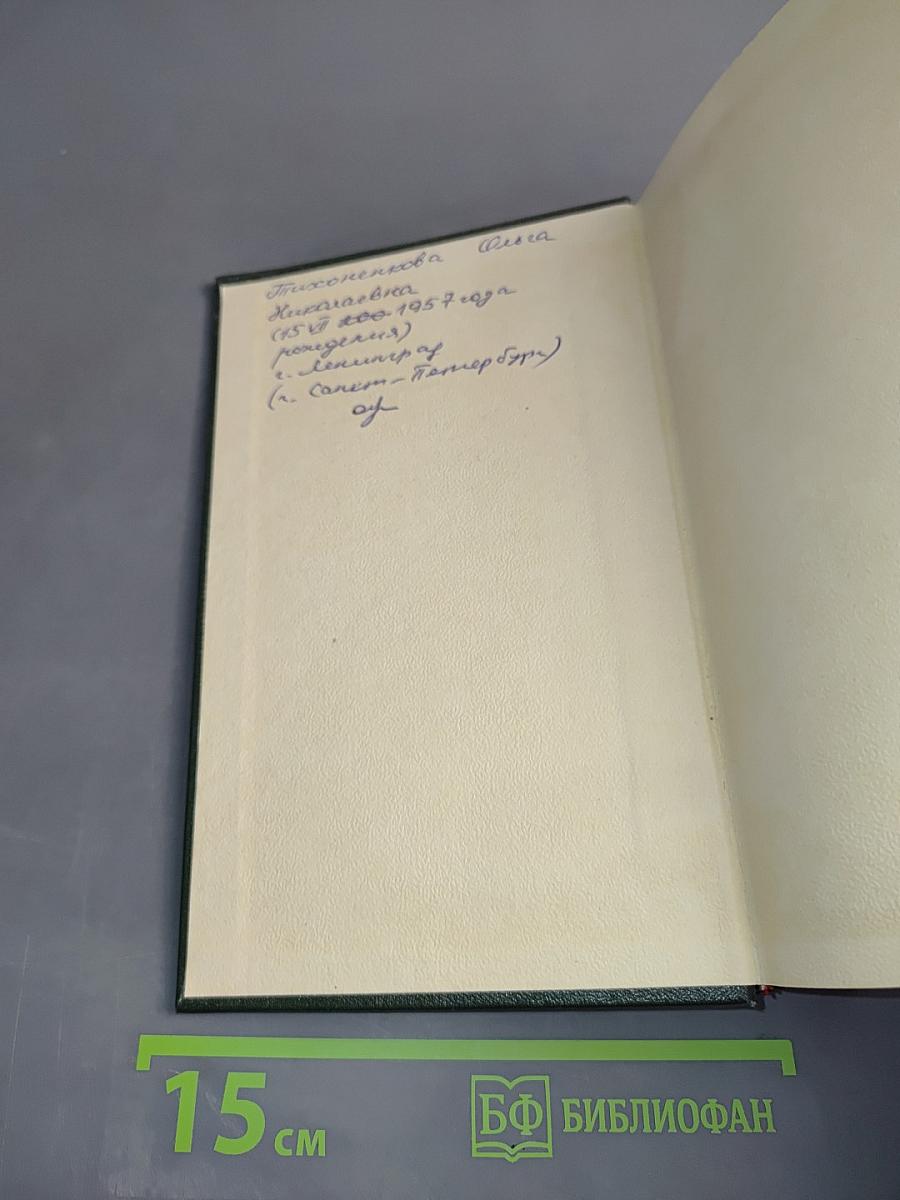 Тихоненкова Ольга
Николаевна
(15 VII 1957 года
рождения)
г. Ленинград
(г. Санкт-Петербург)
15 см
БФ БИБЛИОФАН